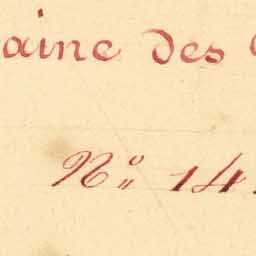 aine des
N° 14.